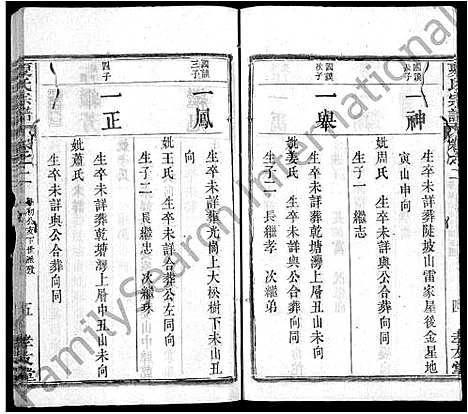 夏氏宗譜
一神
生卒未詳葬陡坡山雷家屋後金星地
寅山申向
妣周氏 生卒未詳與公合葬向同
生子一 繼志
一舉
生卒未詳葬乾塘灣上層丑山未向
妣姜氏 生卒未詳與公合葬向同
生子二 長繼孝 次繼弟
三子
一鳳
生卒未詳葬光崗上大松樹下未山丑
向
妣王氏 生卒未詳合葬公左同向
生子二 長繼忠 次繼珠
四子
一正
生卒未詳葬乾塘灣上層中丑山未向
妣氏 生卒未詳與公合葬向同
夏氏宗譜
五
孝友堂
FamilySearch International